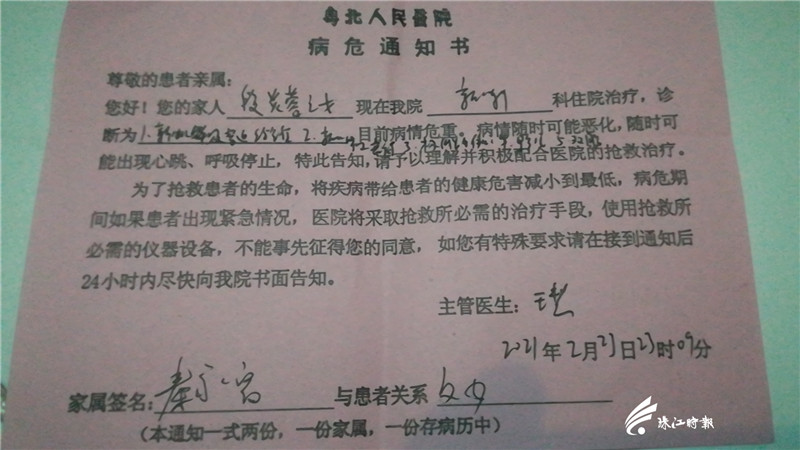 粤北人民医院
病危通知书
尊敬的患者亲属：
您好！您的家人 现在我院 科住院治疗，诊
断为 目前病情危重。病情随时可能恶化，随时可
能出现心跳、呼吸停止，特此告知，请予以理解并积极配合医院的抢救治疗。
为了抢救患者的生命，将疾病带给患者的健康危害减小到最低，病危期
间如果患者出现紧急情况，医院将采取抢救所必需的治疗手段，使用抢救所
必需的仪器设备，不能事先征得您的同意，如您有特殊要求请在接到通知后
24小时内尽快向我院书面告知。
主管医生：
2021年2月23日23时09分
家属签名： 与患者关系 父女
（本通知一式两份，一份家属，一份存病历中）
珠江时报